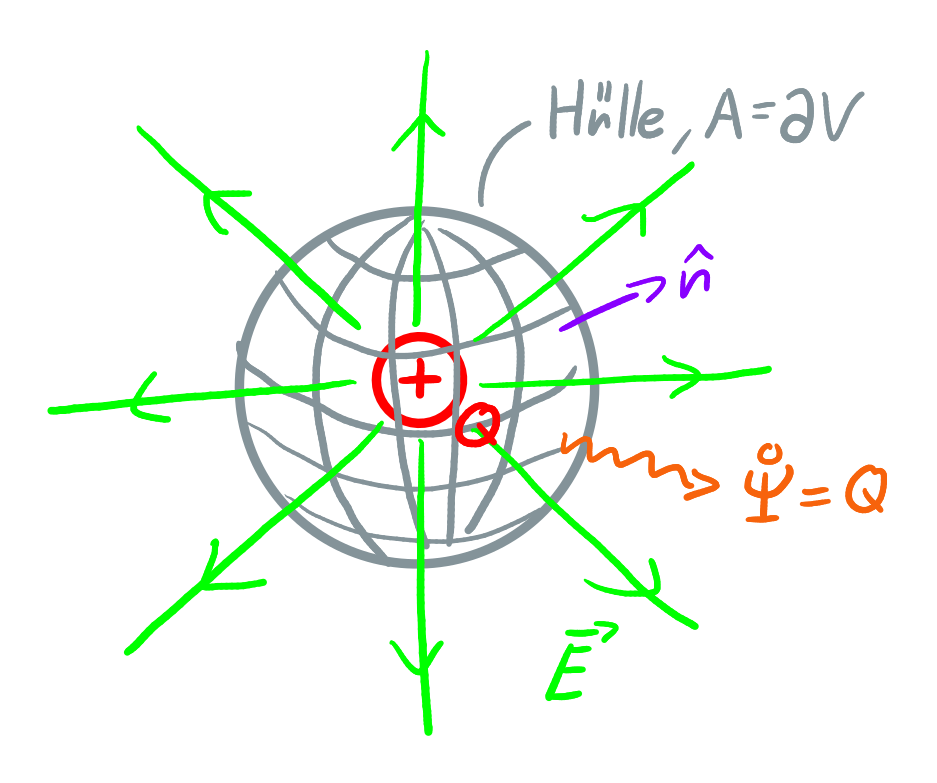 Hülle, A=∂V
n̂
+
Q
Ψ̊ = Q
E⃗